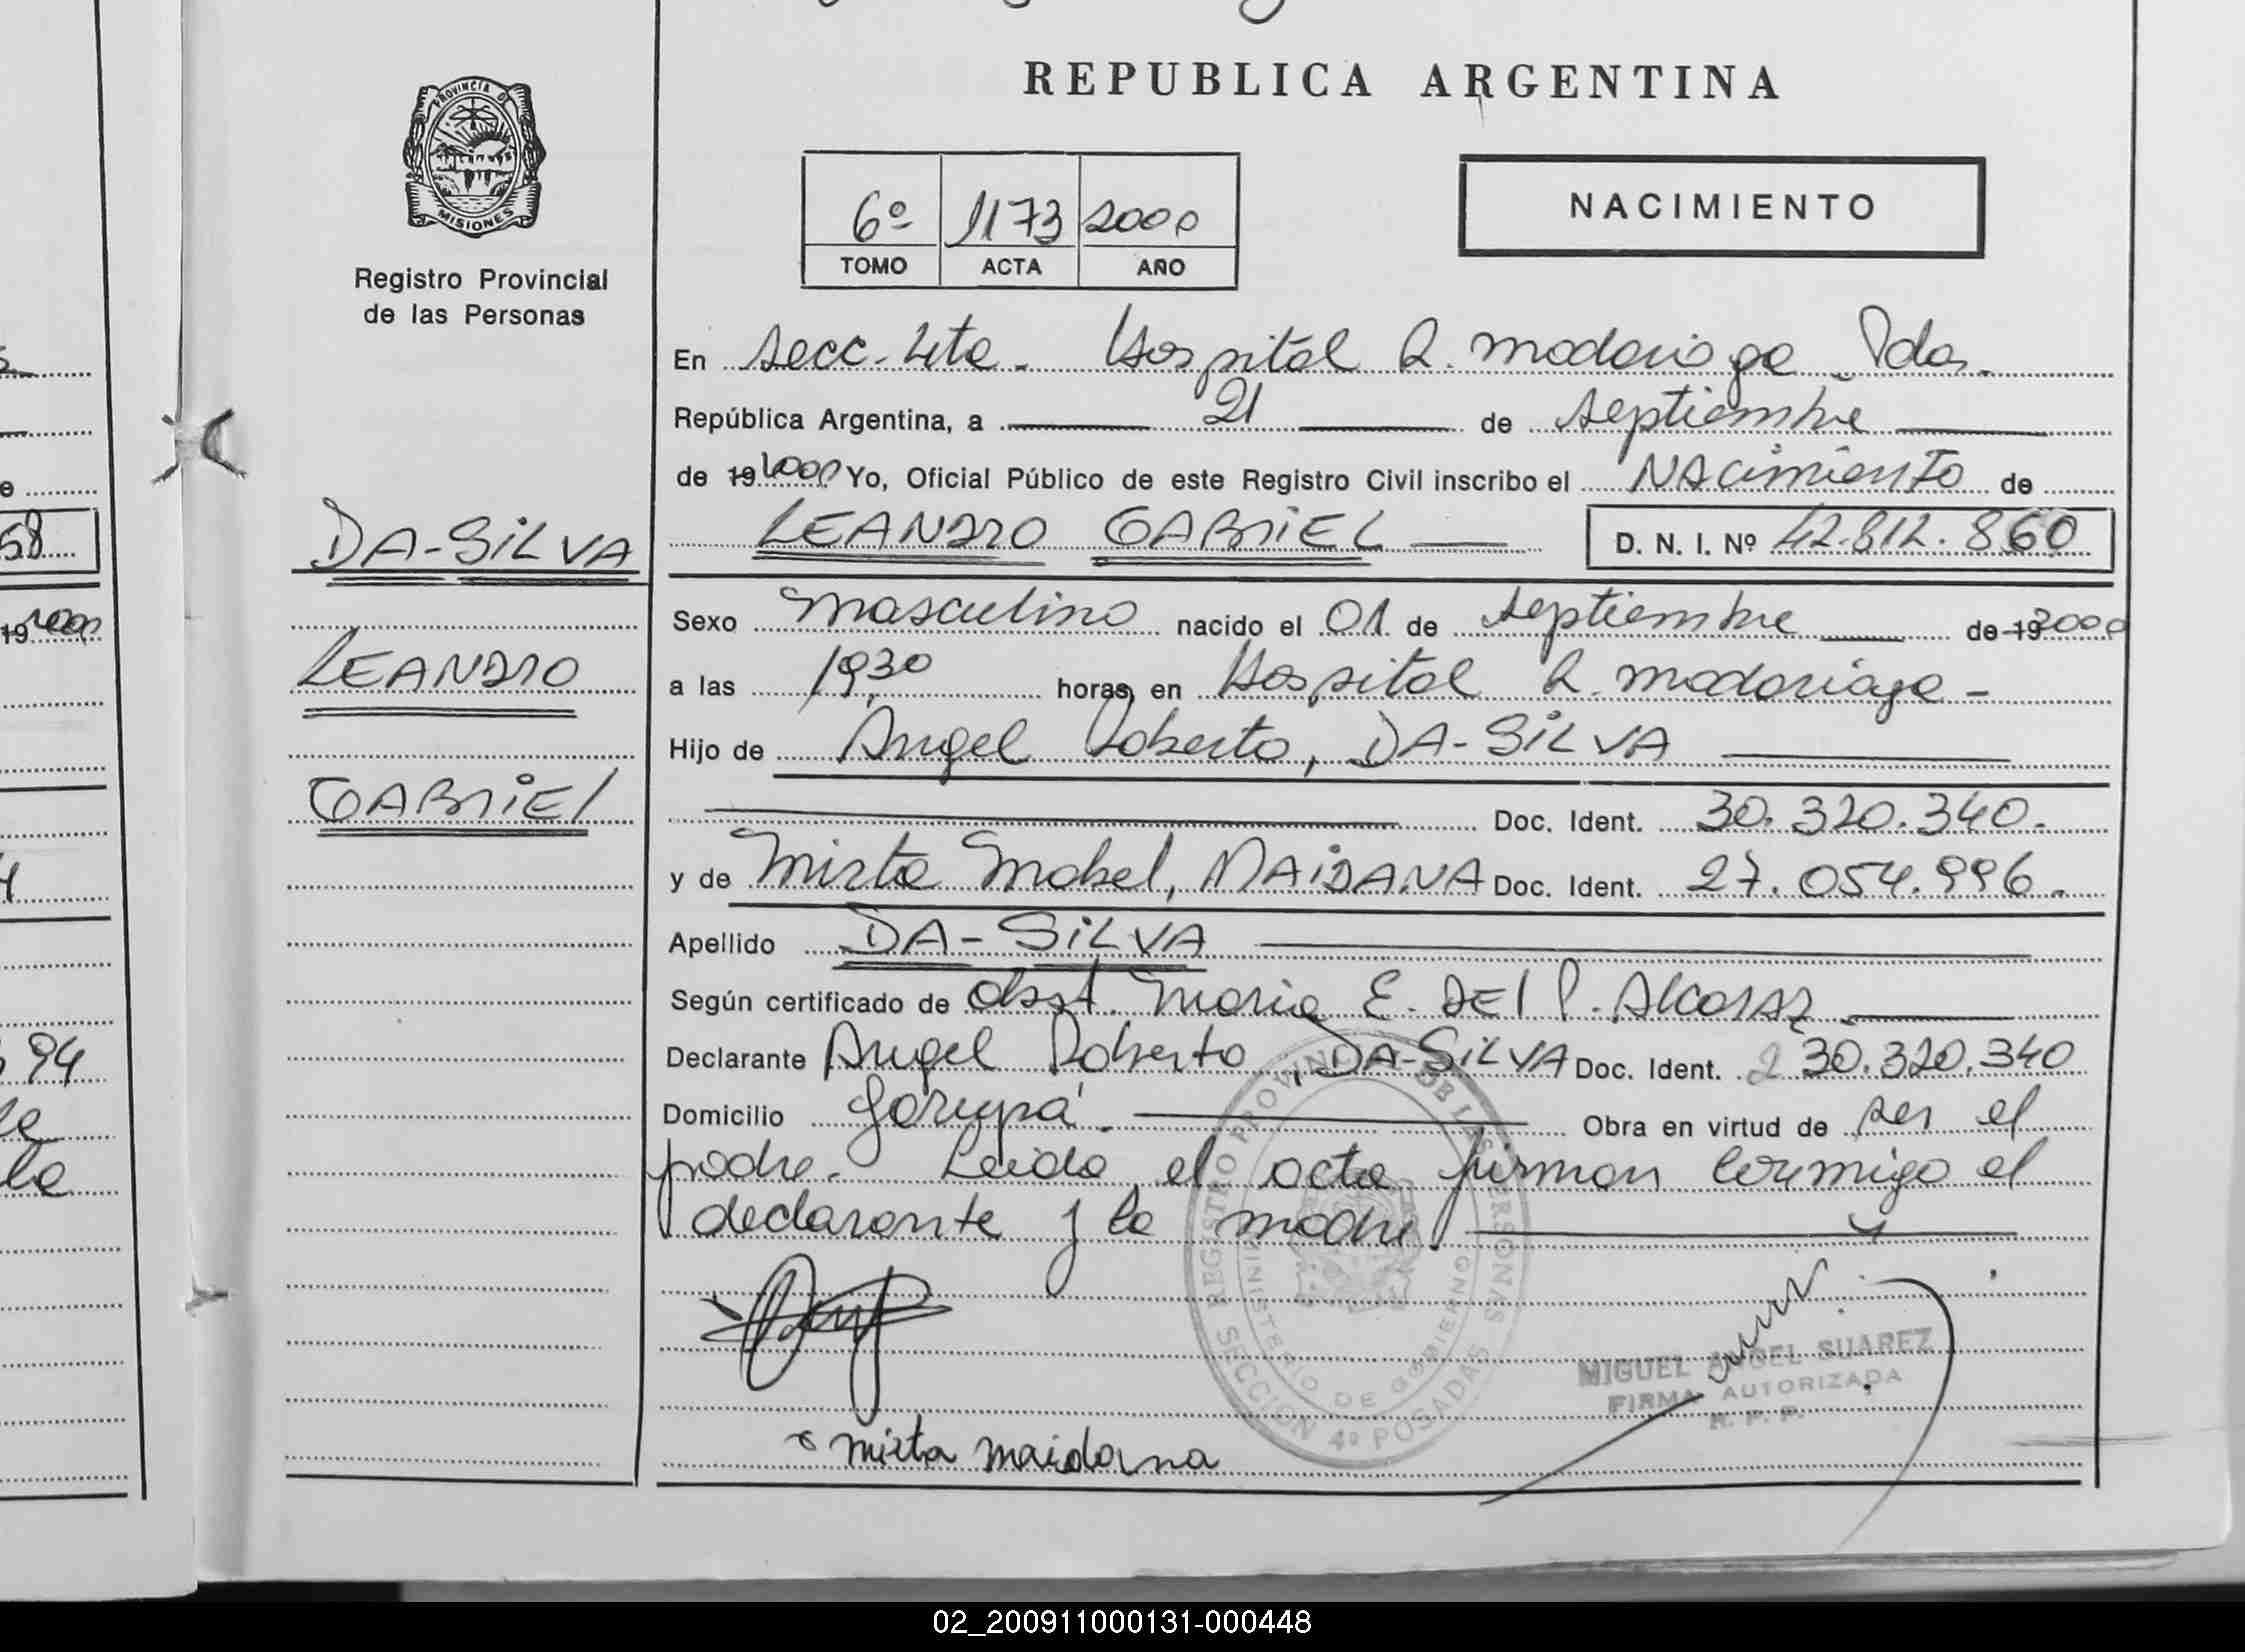 REPUBLICA ARGENTINA
PROVINCIA DE
MISIONES
Registro Provincial
de las Personas
6º 1173 2000
TOMO ACTA AÑO
NACIMIENTO
En Secc. 4ta. Hospital R. Madariaga. Pdas.
República Argentina, a 21 de Septiembre
de 19 2000 Yo, Oficial Público de este Registro Civil inscribo el NACIMIENTO de
LEANDRO GABRIEL D. N. I. Nº 42.812.860
DA-SILVA
LEANDRO
GABRIEL
Sexo Masculino nacido el 01 de Septiembre de 19 2000
a las 19,30 horas, en Hospital R. Madariaga -
Hijo de Angel Roberto, DA-SILVA
Doc. Ident. 30.320.340.
y de Mirta Mabel, MAIDANA Doc. Ident. 27.054.996.
Apellido DA-SILVA
Según certificado de Obst. Maria E. DEl P. Alcaraz
Declarante Angel Roberto, DA-SILVA Doc. Ident. 30.320.340
Domicilio Garupá. Obra en virtud de ser el
padre. Leida el acta firman conmigo el
declarante y la madre.
REGISTRO PROVINCIAL DE LAS PERSONAS
MINISTERIO DE GOBIERNO
SECCION 4º POSADAS
MIGUEL ANGEL SUAREZ
FIRMA AUTORIZADA
R. P. P.
mirta maidana
58
19 2000
94
la
02_200911000131-000448